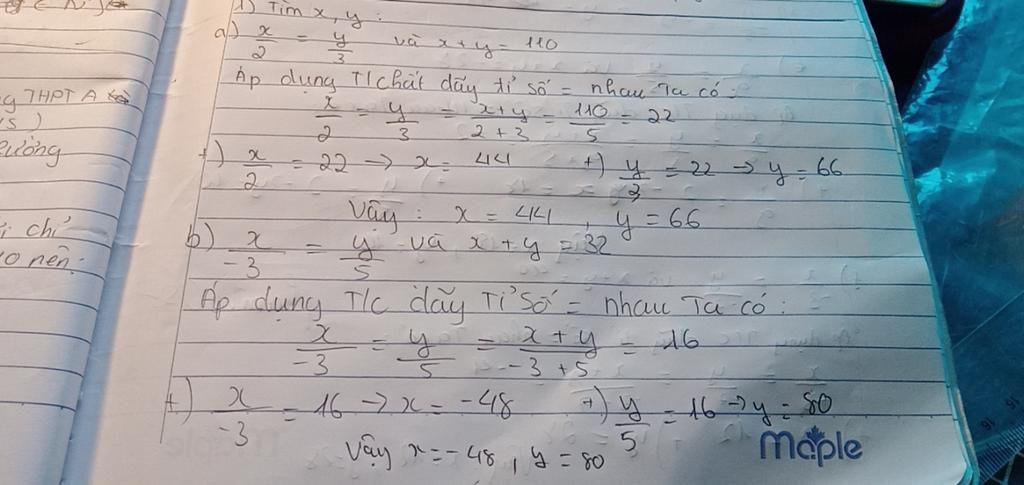 1) Tìm x, y :
a) x/2 = y/3 và x + y = 110
Áp dụng T/chất dãy tỉ số = nhau Ta có :
x/2 = y/3 = x+y/2+3 = 110/5 = 22
+) x/2 = 22 → x = 44 +) y/3 = 22 → y = 66
Vậy : x = 44 , y = 66
b) x/-3 = y/5 và x + y = 32
Áp dụng T/c dãy Tỉ số = nhau Ta có :
x/-3 = y/5 = x + y/-3 + 5 = 16
+) x/-3 = 16 → x = -48 +) y/5 = 16 → y = 80
Vậy x = -48 , y = 80
Maple
g THPT A
ưởng
chỉ
nên